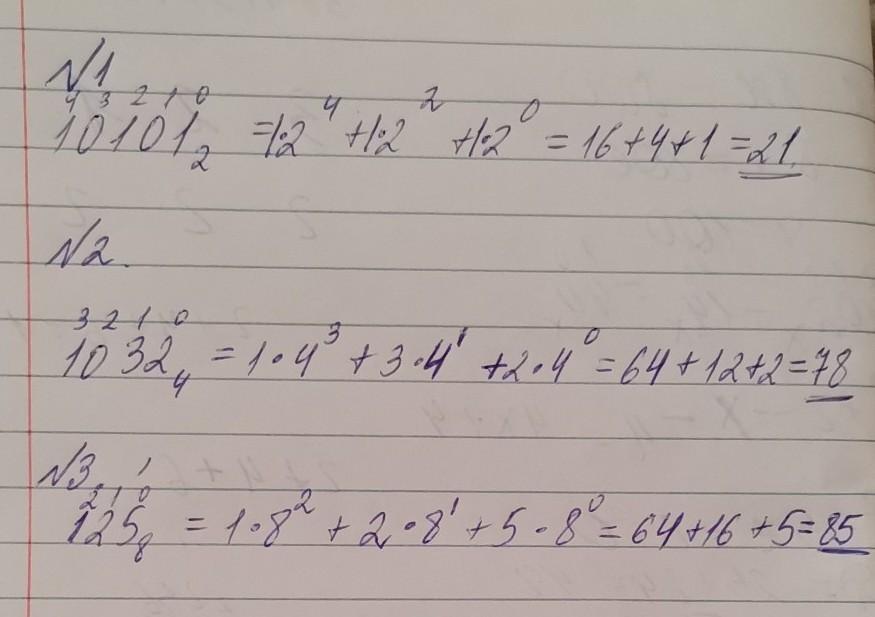 №1
4 3 2 1 0
10101₂ = 1·2⁴ + 1·2² + 1·2⁰ = 16 + 4 + 1 = 21
№2.
3 2 1 0
1032₄ = 1·4³ + 3·4¹ + 2·4⁰ = 64 + 12 + 2 = 78
№3.
2 1 0
125₈ = 1·8² + 2·8¹ + 5·8⁰ = 64 + 16 + 5 = 85